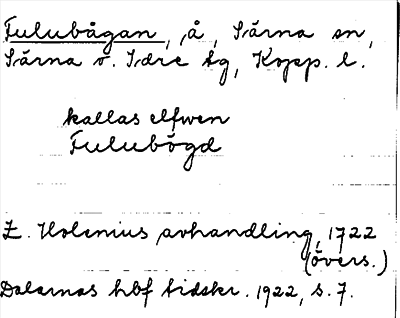 Fulubågan, å, Särna sn,
Särna o. Idre tg, Kopp. l.
kallas elfwen
Fulubögd
E. Holenius avhandling, 1722
(övers.)
Dalarnas hbf tidskr. 1922, s. 7.